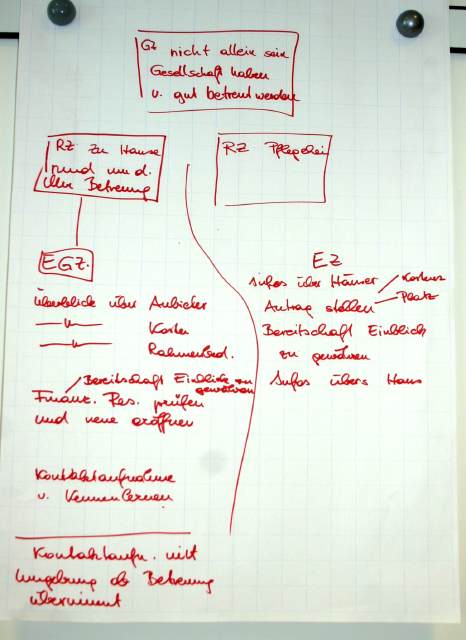 GZ nicht allein sein
Gesellschaft haben
u. gut betreut werden
RZ zu Hause
rund um d.
Uhr Betreuung
RZ Pflegeheim
EGZ.
Überblick über Anbieter
Kosten
Rahmenbed.
Bereitschaft Einblicke zu
gewähren
Finanz. Res. prüfen
und neue eröffnen
Kontaktaufnahme
u. Kennenlernen
Kontaktaufn. mit
Umgebung ob Betreuung
übernimmt
EZ
Infos über Häuser
Kosten
Platz
Antrag stellen
Bereitschaft Einblick
zu gewähren
Infos übers Haus